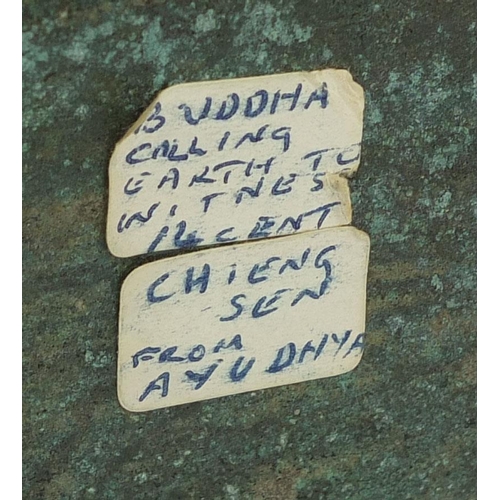 BUDDHA
CALLING
EARTH TO
WITNES
14 CENT
CHIENG
SEN
FROM
AYUDHYA